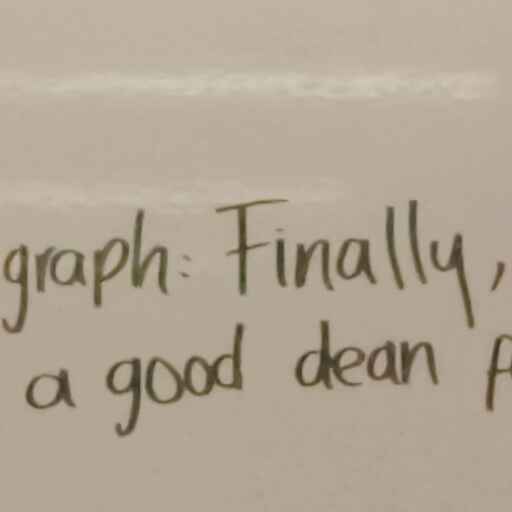 graph: Finally,
a good dean